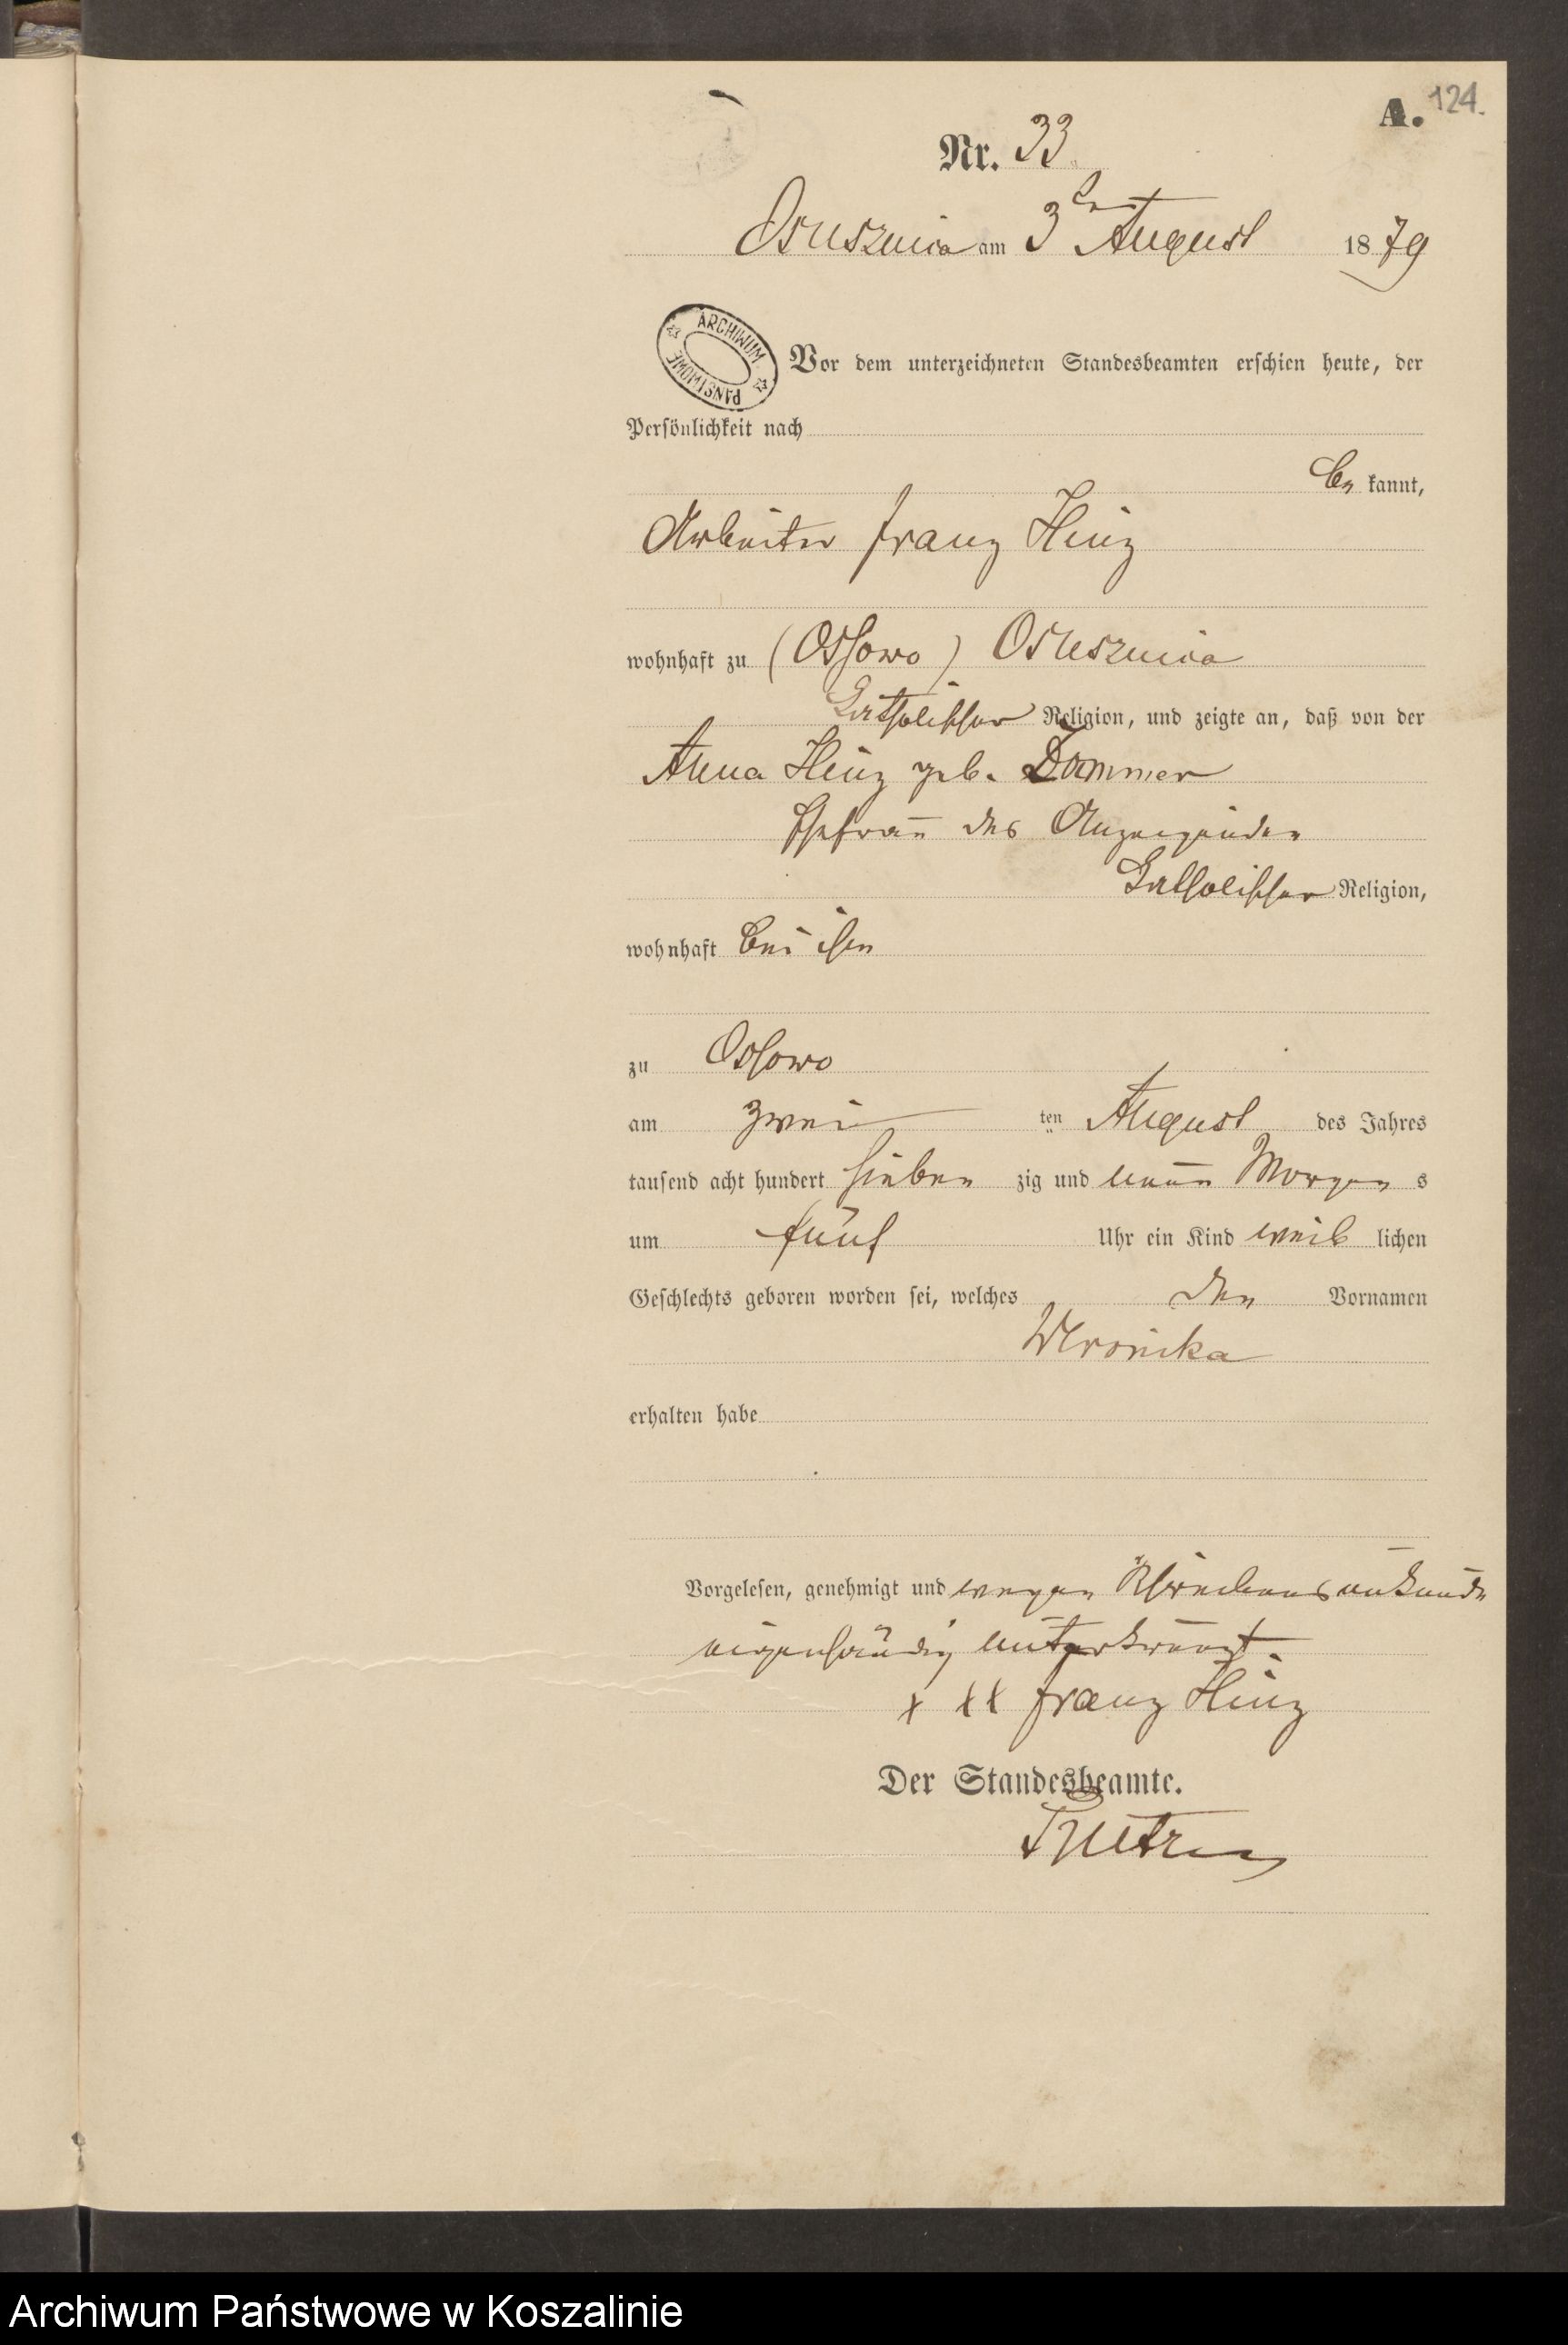 A. 124.
Nr. 33
Osusznica am 3ten August 1879
ARCHIWUM PAŃSTWOWE
Vor dem unterzeichneten Standesbeamten erschien heute, der
Persönlichkeit nach
be kannt,
Arbeiter Franz Hinz
wohnhaft zu (Ossowo) Osusznica
katholischer Religion, und zeigte an, daß von der
Anna Hinz geb. Dammer
Ehefrau des Anzeigenden
katholischer Religion,
wohnhaft bei ihm
zu Ossowo
am zwei ten August des Jahres
tausend acht hundert sieben zig und neun Morgen s
um fünf Uhr ein Kind weib lichen
Geschlechts geboren worden sei, welches den Vornamen
Weronika
erhalten habe
Vorgelesen, genehmigt und wegen Schreibensunkunde
eigenhändig unterkreuzt.
x xx Franz Hinz
Der Standesbeamte.
Archiwum Państwowe w Koszalinie